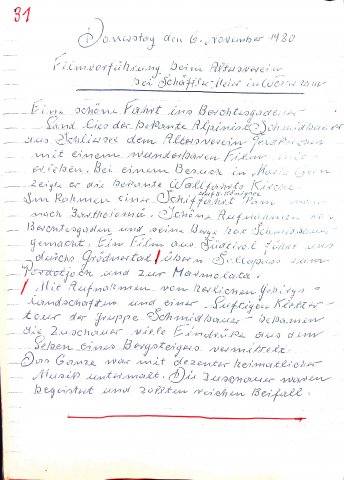 31
Donnerstag den 6. November 1980
Filmvorführung beim Altersverein
bei Schäffler-Meir in
Eine schöne Fahrt ins Berchtesgadener
Land lies der bekante Alpinist Schmidbauer
aus Schliersee dem Altersverein
mit einem wunderbaren Film
erleben. Bei einem Besuch in Maria Gern
zeigte er die bekante Wallfahrts Kirche
Im Rahmen einer Schiffahrt kam man
auf d. Königsee
nach Bartholomä. Schöne Aufnahmen von
Berchtesgaden und seine Berge hat Schmidbauer
gemacht. Ein Film aus Südtirol führt uns
durchs Grödnertal übern Sellapass zum
Pordoijoch und zur Marmolata.
Mit Aufnahmen von herlichen Gebirgs=
landschaften und einer luftigen Kletter=
tour der Gruppe Schmidbauer bekamen
die Zuschauer viele Eindrücke aus dem
Leben eines Bergsteigers vermittelt.
Das Ganze war mit dezenter heimatlicher
Musik untermalt. Die Zuschauer waren
begeistert und zollten reichen Beifall.